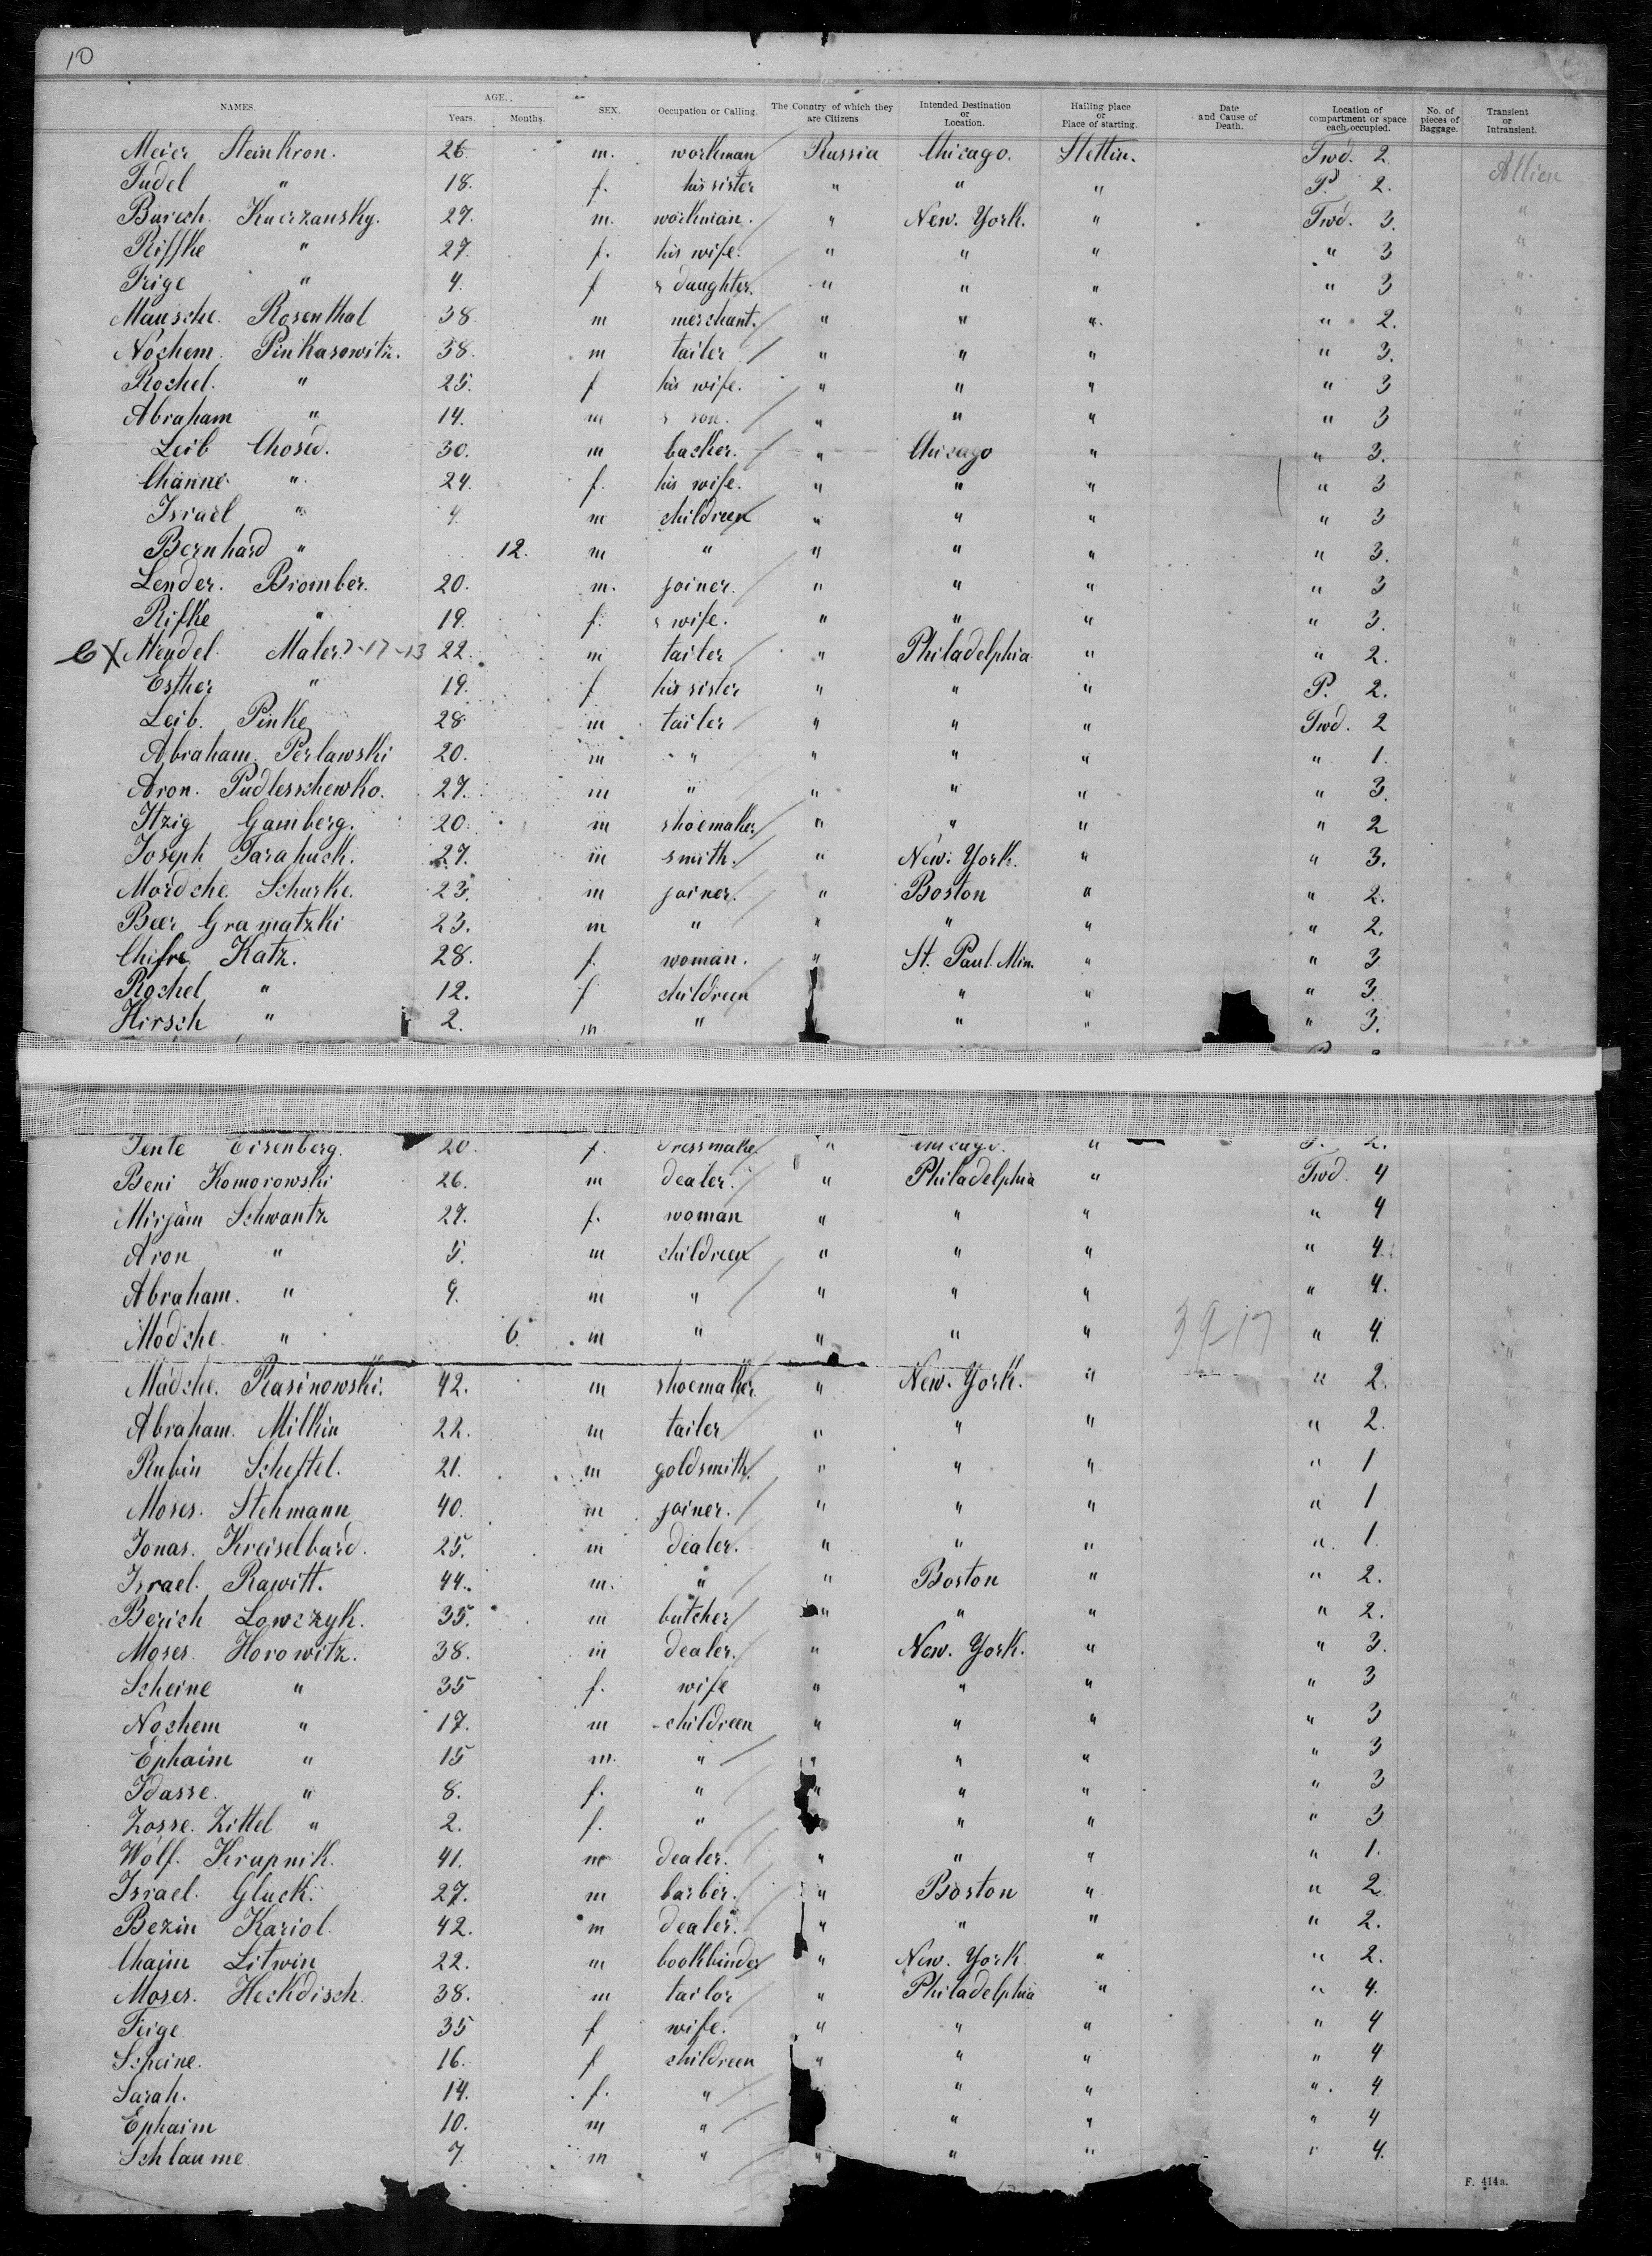 10
NAMES. AGE. Years. Months. SEX. Occupation or Calling. The Country of which they are Citizens Intended Destination or Location. Hailing place or Place of starting. Date and Cause of Death. Location of compartment or space each occupied. No. of pieces of Baggage. Transient or Intransient.
Meier Steinkron. 26. m. workman Russia Chicago. Stettin. Twd. 2 Allien
Judel " 18. f. his sister " " " P. 2. "
Burech. Kuerzansky. 27. m. workman. " New. York. " Twd. 3. "
Riffke " 27. f. his wife. " " " " 3 "
Frige " 4. f s daughter. " " " " 3 "
Mausche. Rosenthal 38 m merchant. " " " " 2. "
Nochem. Pinkasowitz. 38. m tailer " " " " 3. "
Rochel. " 25. f his wife. " " " " 3 "
Abraham " 14. m s son. " " " " 3 "
Leib Chosed. 30. m backer. " Chicago " " 3. "
Channe " 24. f. his wife. " " " " 3 "
Israel " 4. m childreen " " " " 3 "
Bernhard " 12. m " " " " " 3. "
Lender. Bromber. 20. m. joiner. " " " " 3 "
Rifke " 19. f. s wife. " " " " 3. "
X Mendel Maler 7-17-13 22. m tailer " Philadelphia " " 2. "
Esther " 19. f his sister " " " P. 2. "
Leib. Pinke 28 m tailer " " " Twd. 2 "
Abraham. Perlawski 20. m " " " " " 1. "
Aron. Pudlesschewko. 27. m " " " " " 3. "
Itzig Gamberg. 20. m shoemaker " " " " 2 "
Joseph Tarahuck. 27. m smith. " New. York. " " 3. "
Mordche. Schurke. 23. m joiner. " Boston " " 2. "
Beer Gramatzki 23. m " " " " " 2. "
Chifre Katz. 28. f. woman. " St. Paul. Min. " " 3 "
Rochel " 12. f childreen " " " 3. "
Hirsch " 2. m " " " " 3. "
Jente Eisenberg. 20 f. dressmaker " Chicago. " P. 2. "
Beni Komorowski 26. m dealer. " Philadelphia " Twd. 4 "
Mirjam Schwantz 27. f. woman " " " " 4 "
Aron " 5. m childreen " " " " 4. "
Abraham. " 4. m " " " " " 4. "
Modche. " 6. m " " " " 39-17 " 4. "
Madche. Rasinowski. 42. m shoemaker " New. York. " " 2. "
Abraham. Milkin 22. m tailer " " " " 2. "
Rubin Scheftel. 21. m goldsmith. " " " " 1 "
Moses. Stehmann 40. m joiner. " " " " 1 "
Jonas. Kreiselburd. 25. m dealer. " " " " 1. "
Israel. Rawitt. 44. m. " " Boston " " 2. "
Berich Lowczyk. 35. m butcher " " " " 2. "
Moses. Horowitz. 38. m dealer. " New. York. " " 3. "
Scheine " 35 f. wife " " " " 3 "
Nochem " 17. m childreen " " " " 3 "
Ephaim " 15 m. " " " " " 3 "
Idasse. " 8. f. " " " " " 3 "
Zosse. Zittel " 2. f. " " " " 3 "
Wolf. Krupnik. 41. m dealer. " " " " 1. "
Israel. Gluck. 27. m barber. " Boston " " 2. "
Bezin Kariol. 42. m dealer. " " " " 2. "
Chaim Litwin 22. m bookbinder " New. York. " " 2. "
Moses. Heckdisch. 38. m tailor " Philadelphia " " 4. "
Feige 35 f wife. " " " " 4 "
Scheine. 16. f childreen " " " " 4 "
Sarah. 14. f. " " " " 4 "
Ephaim 10. m " " " " 4 "
Schlaume 7. m " " " " " 4. "
F. 414a.